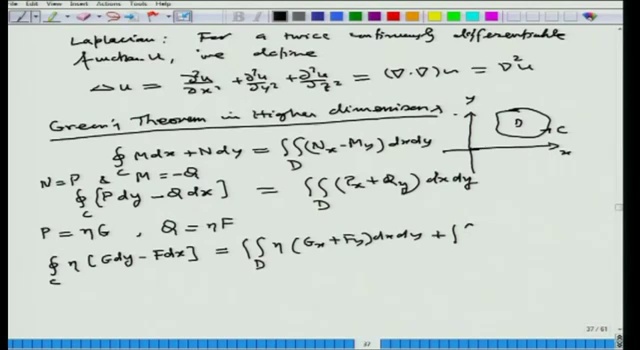 Edit View Insert Actions Tools Help
Laplacian: For a twice continuously differentiable
function u, we define
Δu = ∂²u/∂x² + ∂²u/∂y² + ∂²u/∂z² = (∇·∇)u = ∇²u
Green's Theorem in Higher dimensions.
∮_C Mdx + Ndy = ∬_D (N_x - M_y) dxdy
y
D
C
x
N = P & M = -Q
∮_C [Pdy - Qdx] = ∬_D (P_x + Q_y) dxdy
P = ηG , Q = ηF
∮_C η [Gdy - Fdx] = ∬_D η (G_x + F_y) dxdy + ∫
37 / 61
37